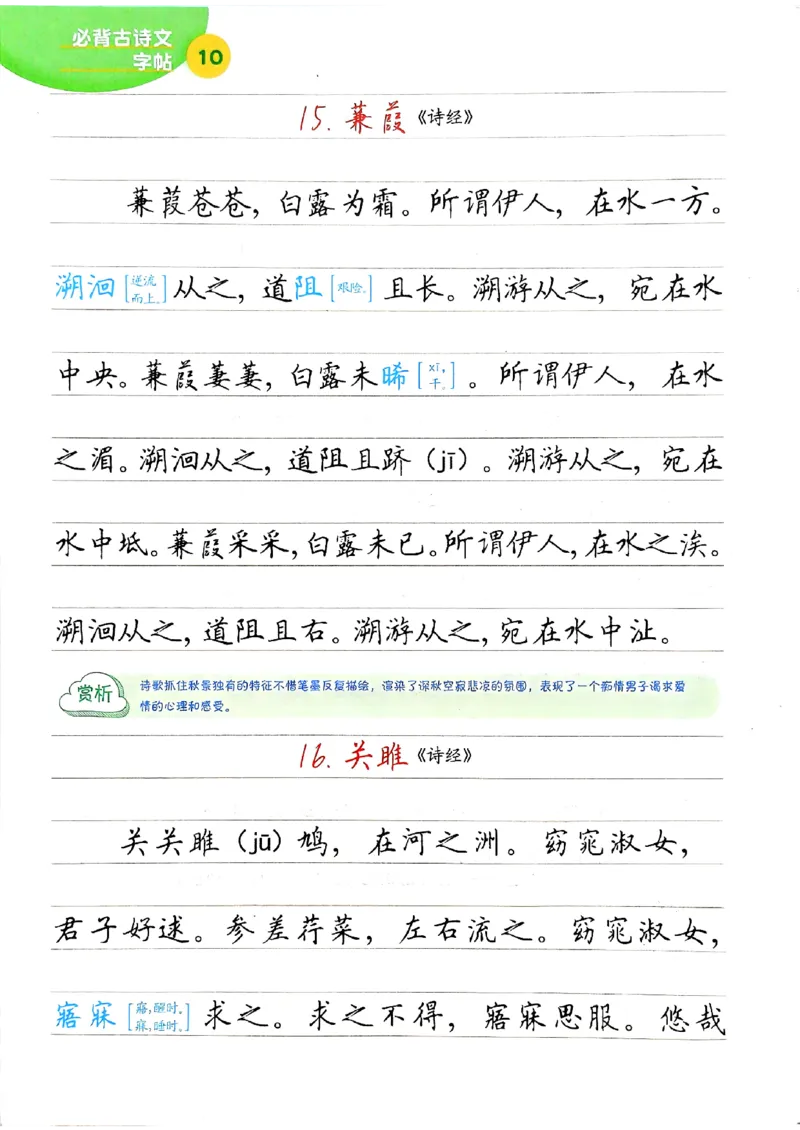 必背古诗文
字帖
10
15. 蒹葭《诗经》
蒹葭苍苍，白露为霜。所谓伊人，在水一方。
溯洄[逆流而上。]从之，道阻[艰险。]且长。溯游从之，宛在水
中央。蒹葭萋萋，白露未晞[xī，干。]。所谓伊人，在水
之湄。溯洄从之，道阻且跻（jī）。溯游从之，宛在
水中坻。蒹葭采采，白露未已。所谓伊人，在水之涘。
溯洄从之，道阻且右。溯游从之，宛在水中沚。
赏析
诗歌抓住秋景独有的特征不惜笔墨反复描绘，渲染了深秋空寂悲凉的氛围，表现了一个痴情男子渴求爱
情的心理和感受。
16. 关雎《诗经》
关关雎（jū）鸠，在河之洲。窈窕淑女，
君子好逑。参差荇菜，左右流之。窈窕淑女，
寤寐[寤，醒时。寐，睡时。]求之。求之不得，寤寐思服。悠哉